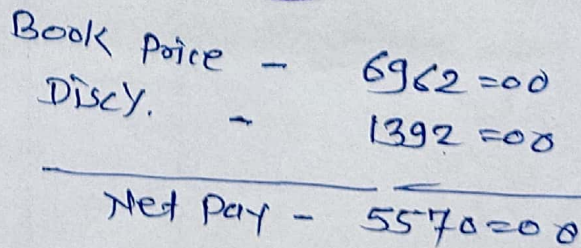 Book Price - 6962=00
Discy. - 1392=00
Net Pay - 5570=00